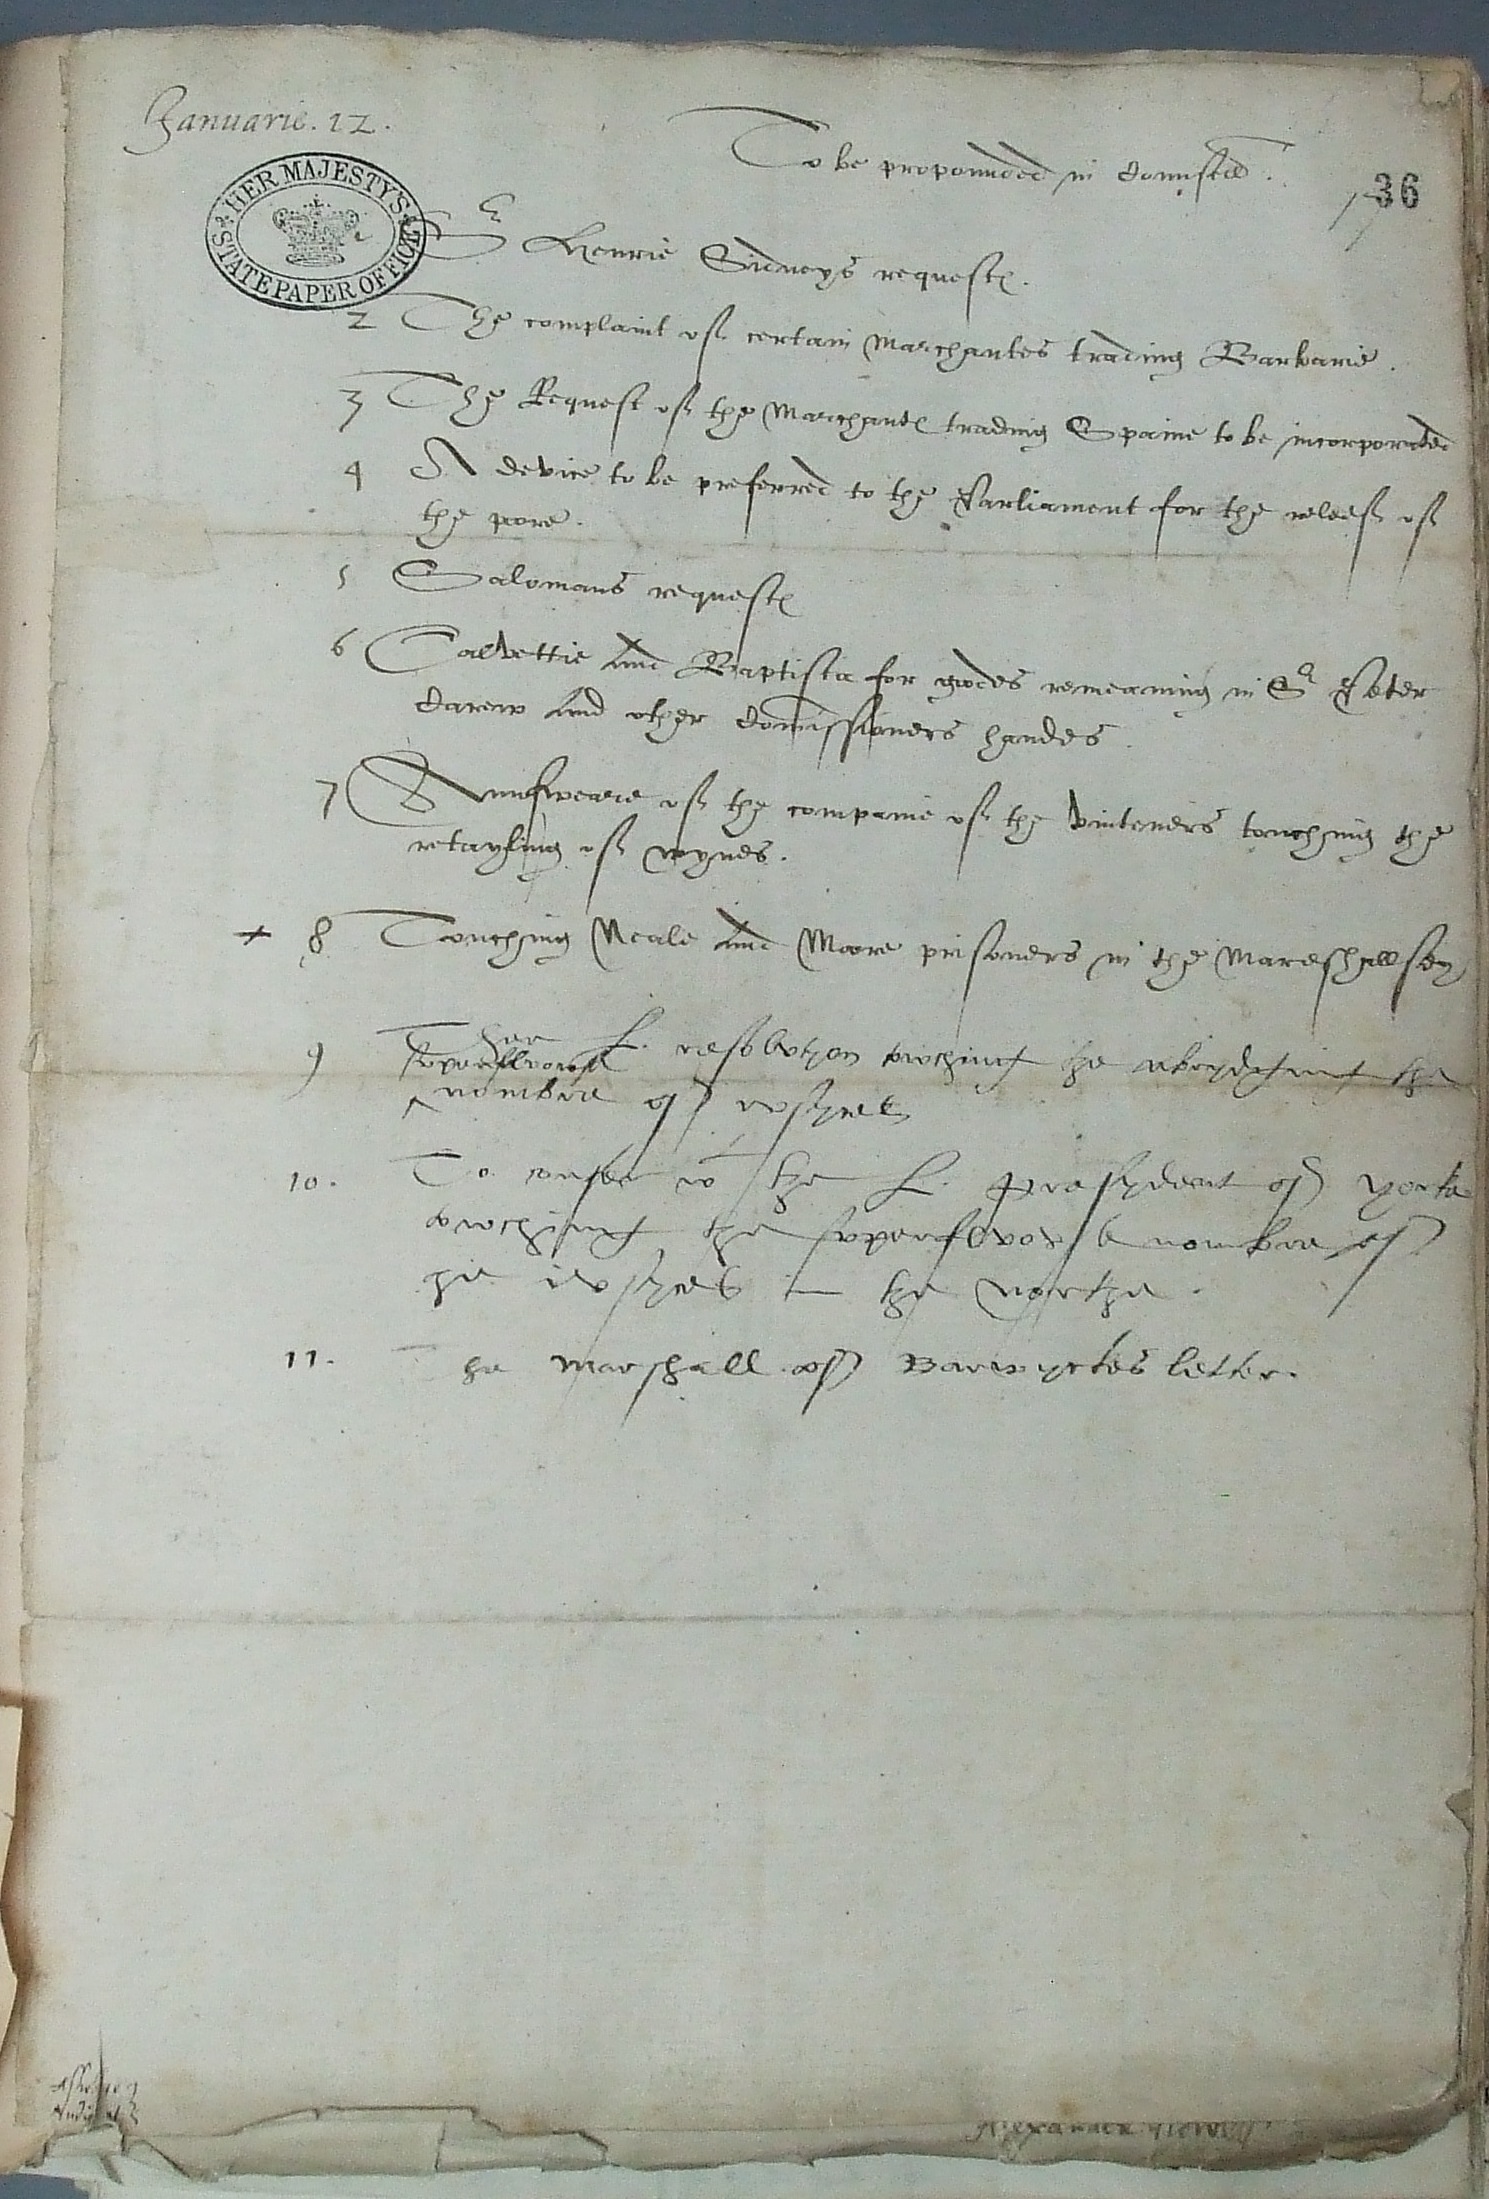 Januarie. 12.
To be propounded in Counsell.
36
17
HER MAJESTY'S STATE PAPER OFFICE
Sr Henrie Sidneys requestes.
2 The complaint of certain Marchantes trading Barbarie.
3 The Request of the Marchantes trading Spaine to be incorporated
4 A device to be preferred to the Parliament for the releef of
the pore.
5 Salomans requestes
6 Calvettie and Baptista for goodes remeaning in Sr Peter
Carew and other Comissioners handes.
7 Aunsweare of the companie of the Vinteners touching the
retayling of wynes.
+ 8 Touching Neale and Moore prisoners in the Mareshallsey
9 Ther L. resolutyon towching the abrydginge the
superfluowse
^ nombre of
10. To confer wt the L. Presydent of Yorke
towching the superfluowse nombre of
in the Northe.
11. The Marshall off Barwyckes letter.